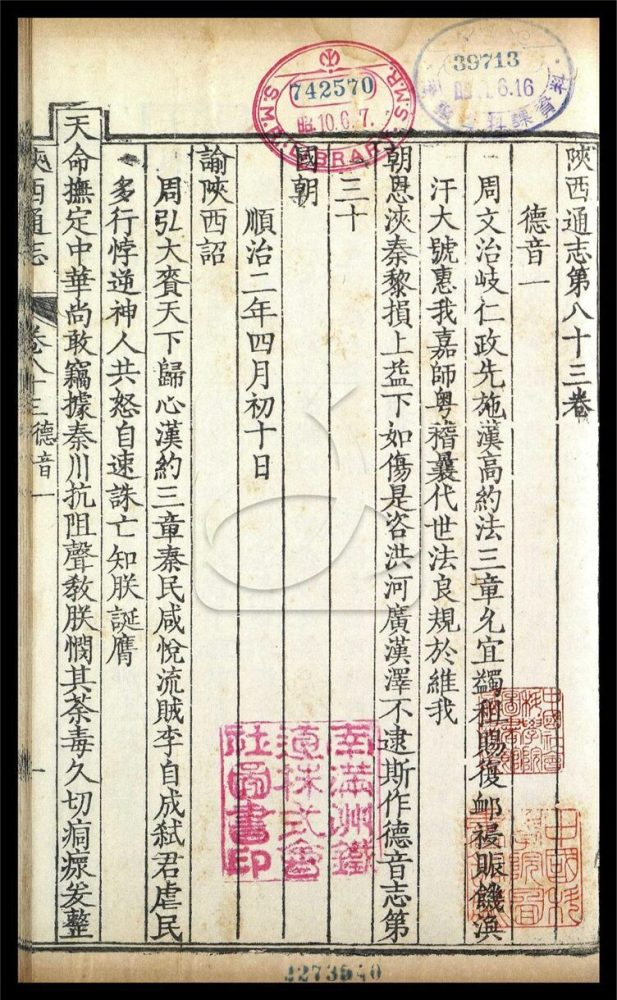 陝西通志第八十三卷
德音一
周文治岐仁政先施漢高約法三章允宜蠲租賜復邮祲賑饑渙
汗大號惠我嘉師粤稽曩代世法良規於維我
朝恩浹秦黎損上益下如傷是咨洪河廣漢澤不逮斯作德音志第
三十
國朝
順治二年四月初十日
諭陝西詔
周弘大賚天下歸心漢約三章秦民咸悅流賊李自成弑君虐民
多行悖逆神人共怒自速誅亡知朕誕膺
天命撫定中華尚敢竊據秦川抗阻聲教朕憫其荼毒久切痌瘝爰整
陝西通志
卷八十三德音一
一
742570
昭10.6.7.
S.M.R. LIBRARY S.M.R.
39713
6.16
南滿洲鐵
道株式會
社圖書印
中國社會
科學院
圖書館
4273540